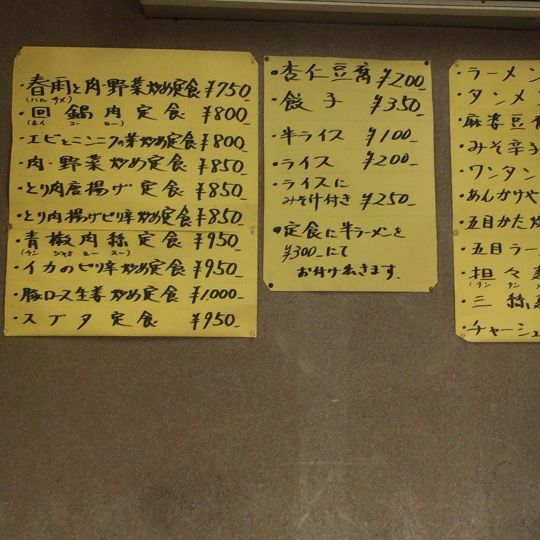 ・春雨と肉・野菜炒め定食 ¥750-
(ハル サメ)
・回鍋肉定食 ¥800-
(ホイ コー ロー)
・エビとニンニクの芽炒め定食 ¥800-
・肉・野菜炒め定食 ¥850-
・とり肉唐揚げ定食 ¥850-
・とり肉揚げピリ辛炒め定食 ¥850-
・青椒肉絲定食 ¥950-
・イカのピリ辛炒め定食 ¥950-
・豚ロース生姜炒め定食 ¥1,000-
・スブタ定食 ¥950-
・杏仁豆腐 ¥200-
・餃子 ¥350-
・半ライス ¥100-
・ライス ¥200-
・ライスに
みそ汁付き ¥250-
・定食に半ラーメンを
¥300-にて
お付け出きます。
・ラーメン
・タンメン
・麻婆豆
・みそ辛子
・ワンタン
・あんかけや
・五目かた炒
・五目ラー
・担々
(タン タン
・三絲
・チャーシュ